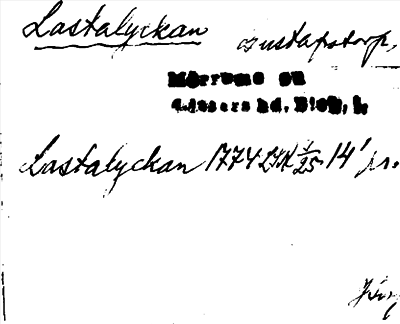 Lastalyckan Gustafstorp,
Mörrums sn
Listers hd, Blek. l.
Lastalyckan 1774 LSK 1/25 14' pr.